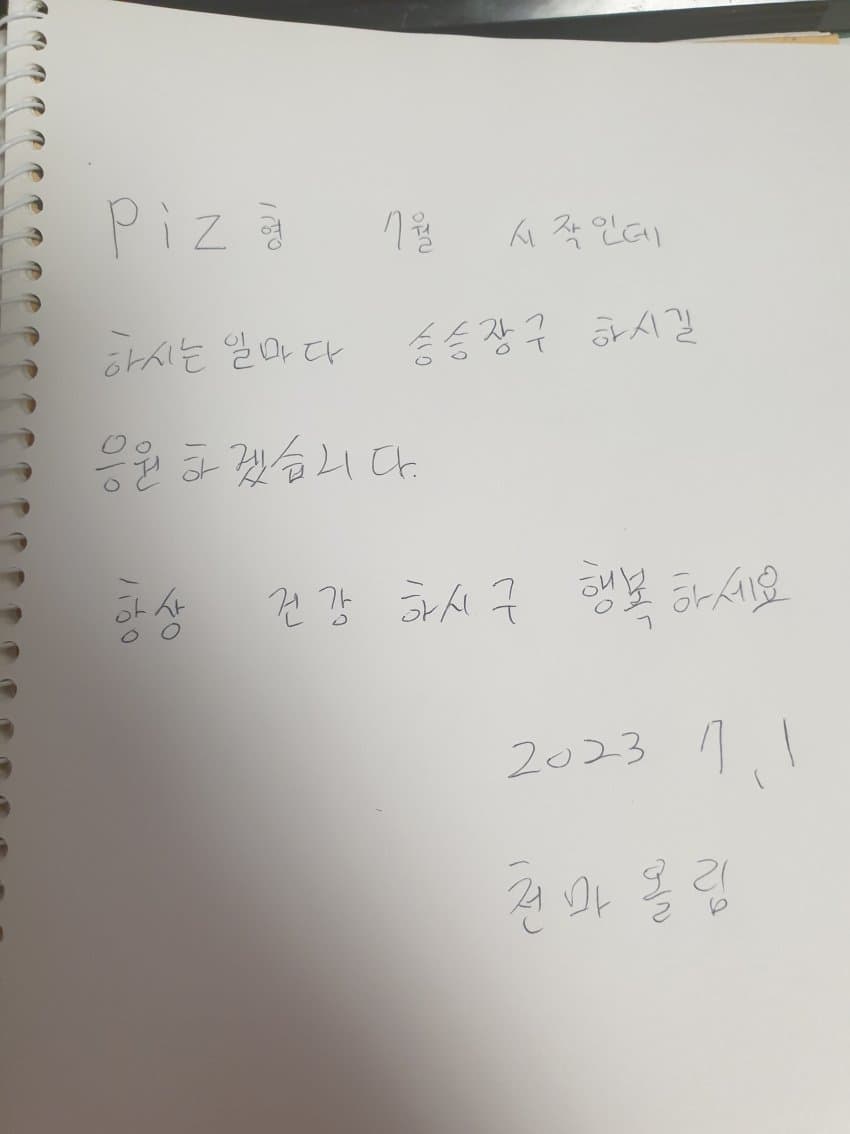 Piz형 7월 시작인데
하시는 일마다 승승장구 하시길
응원하겠습니다.
항상 건강 하시구 행복하세요
2023 7, 1
천마 올림